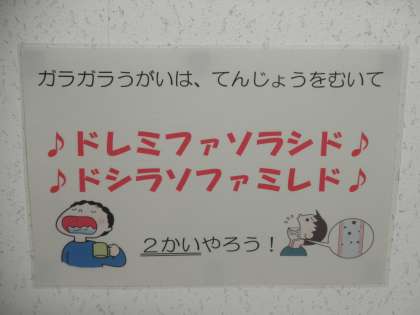 ガラガラうがいは、てんじょうをむいて
♪ドレミファソラシド♪
♪ドシラソファミレド♪
２かいやろう！